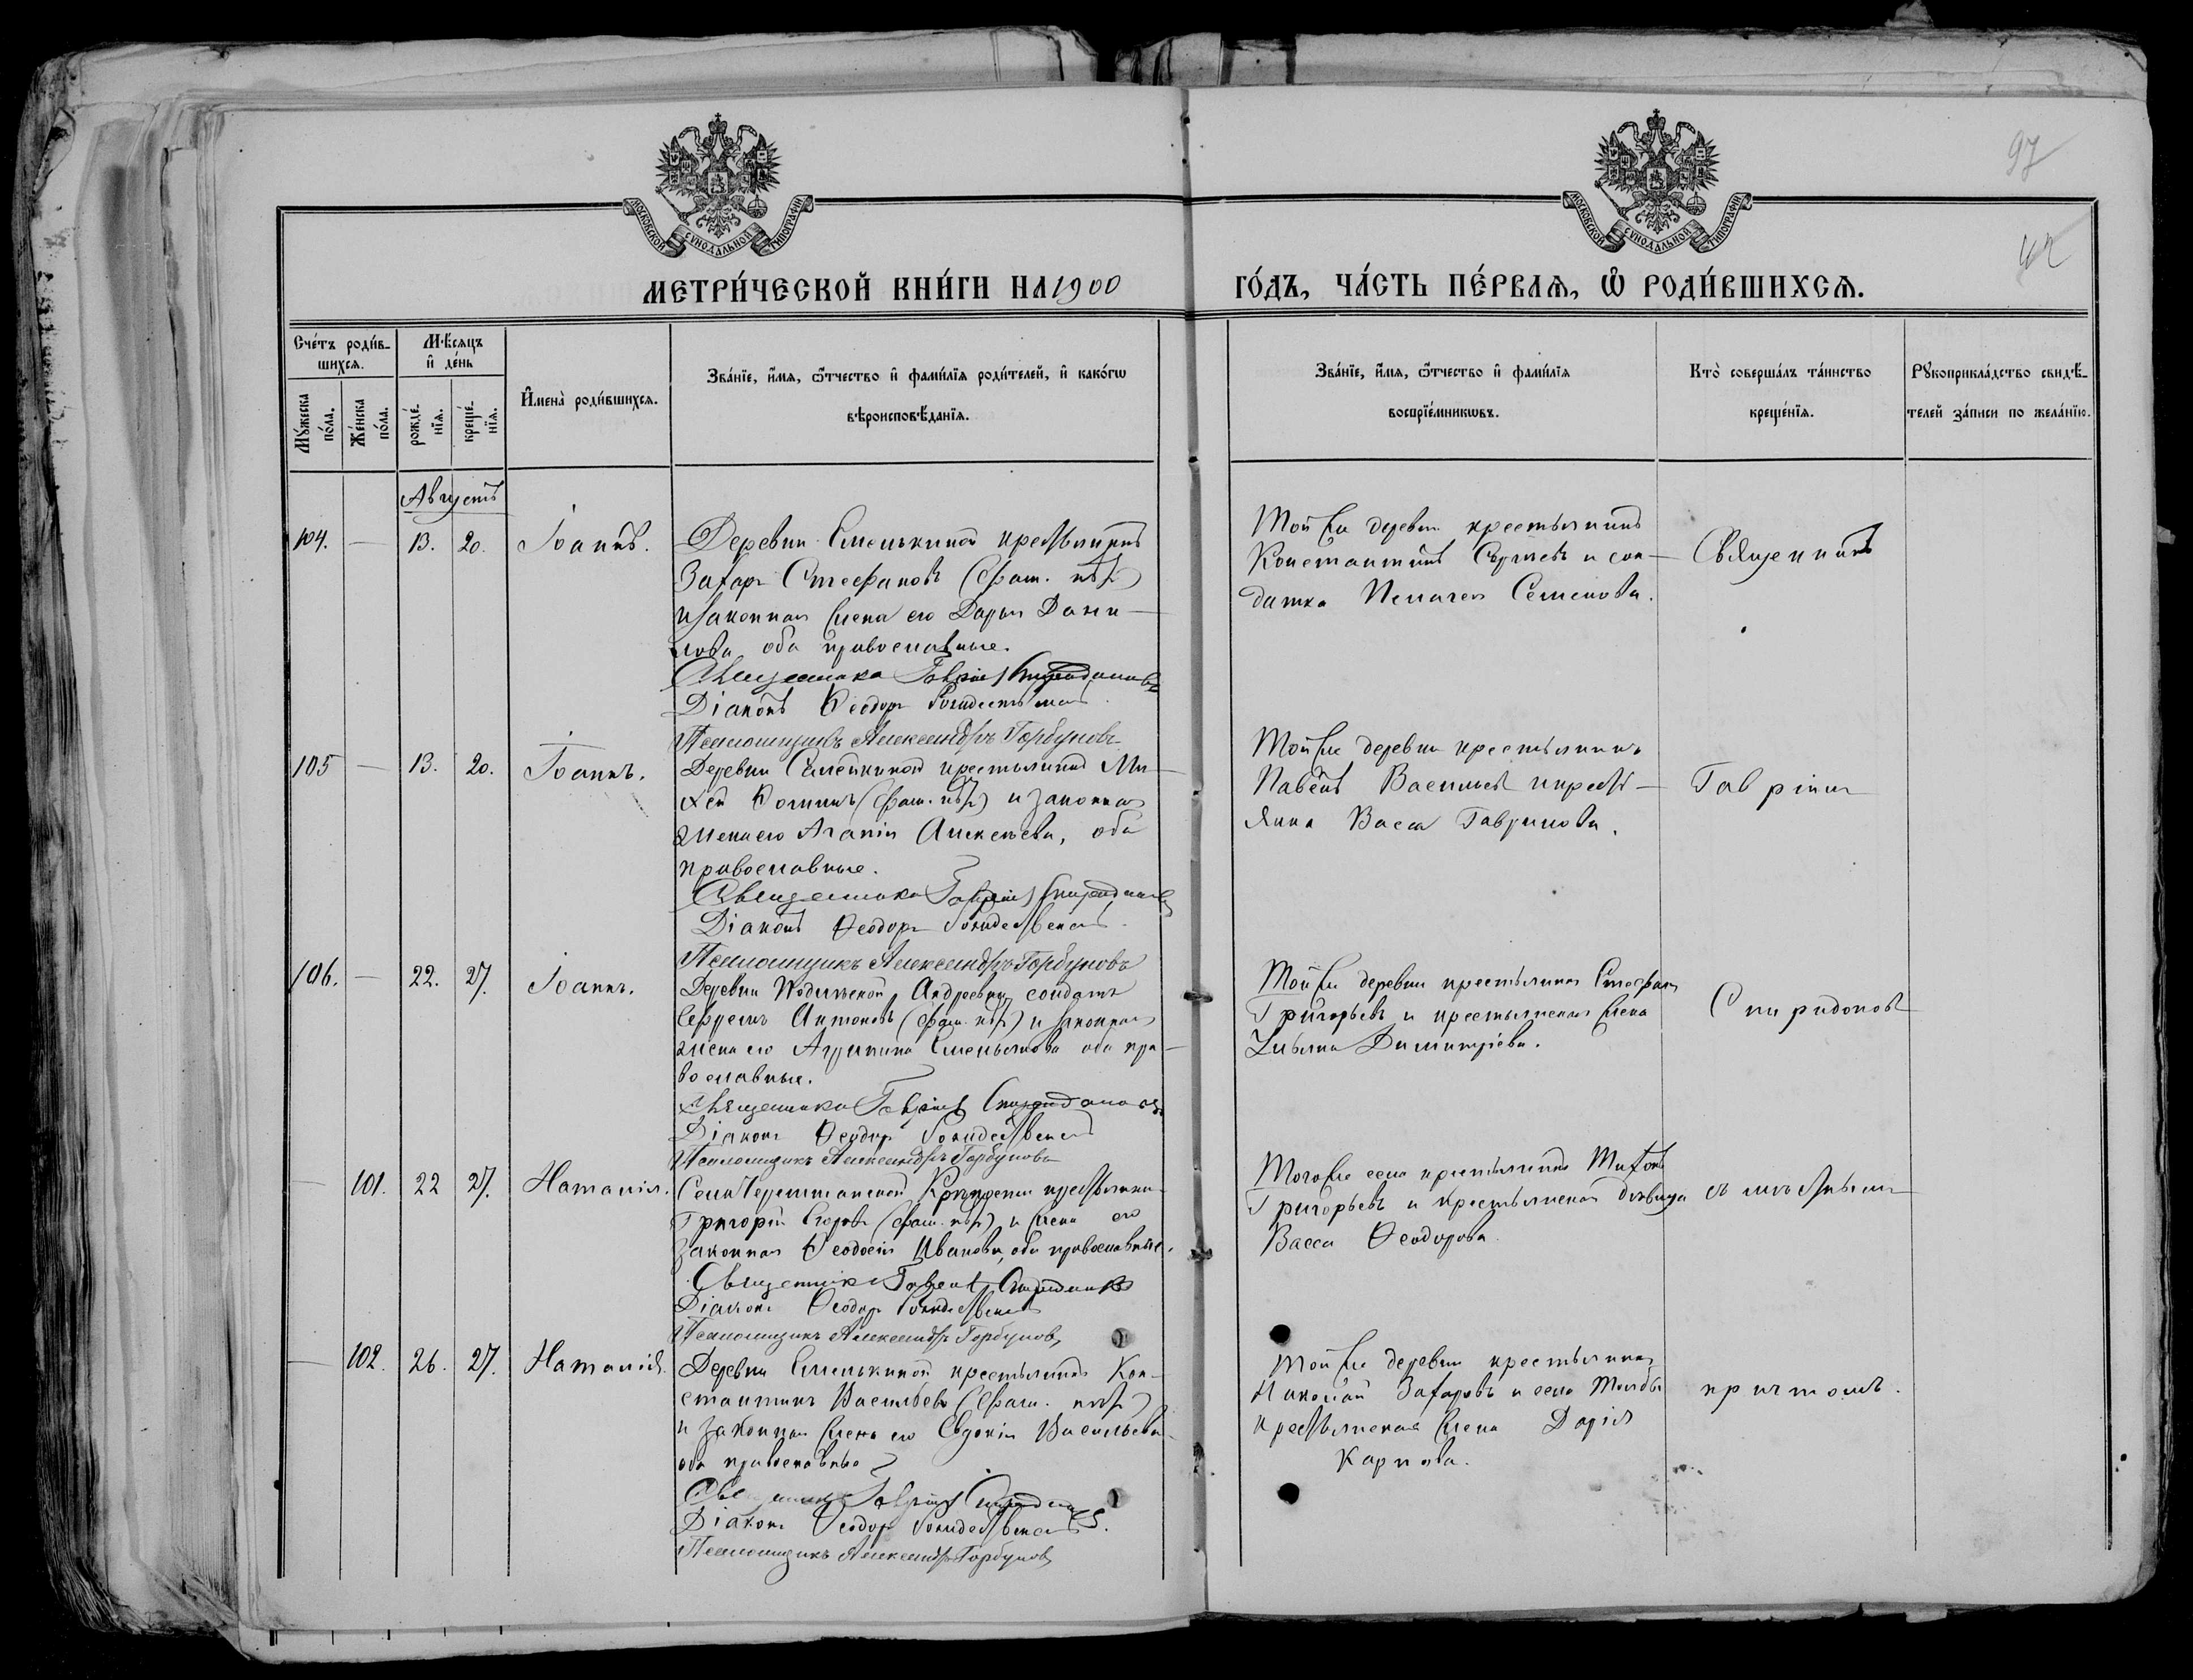 97
42
МОСКОВСКОЙ СѴНОДАЛЬНОЙ ТИПОГРАФІИ
МОСКОВСКОЙ СѴНОДАЛЬНОЙ ТИПОГРАФІИ
МЕТРИ́ЧЕСКОЙ КНИ́ГИ НА 1900 ГО́ДЪ, ЧА́СТЬ ПЕ́РВАѦ, Ѡ РОДИ́ВШИХСѦ.
Сче́тъ роди́в-
шихсѧ.
Мꙋ́жеска
по́ла.
Же́нска
по́ла.
Мѣ́сѧцъ
и҆ де́нь
рожде́-
нїѧ.
креще́-
нїѧ.
И҆мена̀ роди́вшихсѧ.
Зва́нїе, и҆́мѧ, ѻ҆́тчество и҆ фами́лїѧ роди́телей, и҆ како́гѡ
вѣроисповѣ́данїѧ.
Зва́нїе, и҆́мѧ, ѻ҆́тчество и҆ фами́лїѧ
воспрїе́мникѡвъ.
Кто̀ соверша́лъ та́инство
креще́нїѧ.
Рꙋкоприкла́дство свидѣ́-
телей за́писи по жела́нїю.
Августъ
104. — 13. 20. Іоаннъ.
Деревни Емелькиной крестьянинъ
Захаръ Стефановъ (фам. нѣтъ)
и законная жена его Дарья Дани-
лова оба православные.
Священникъ Гавріилъ Спиридоновъ
Діаконъ Ѳеодоръ Рождественскій
Псаломщикъ Александръ Горбуновъ
Той же деревни крестьянинъ
Константинъ и сол-
датка Пелагея Семенова.
Священникъ
105 — 13. 20. Іоаннъ.
Деревни крестьянинъ Ми-
хей Ѳоминъ (фам. нѣтъ) и законная
жена его Агапія Алексѣева, оба
православные.
Священникъ Гавріилъ Спиридоновъ
Діаконъ Ѳеодоръ Рождественскій
Псаломщикъ Александръ Горбуновъ
Той же деревни крестьянинъ
Павелъ Васильевъ и кресть-
янка Васса Гаврилова.
Гавріилъ
106. — 22. 27. Іоаннъ.
Деревни Андреевки солдатъ
Антоновъ (фам. нѣтъ) и законная
жена его Агрипина Емельянова оба пра-
вославные.
Священникъ Гавріилъ Спиридоновъ
Діаконъ Ѳеодоръ Рождественскій
Псаломщикъ Александръ Горбуновъ
Той же деревни крестьянинъ Стефанъ
Григорьевъ и крестьянская жена
Ульяна Димитріева.
Спиридоновъ
— 101. 22 27. Наталія.
Села Черемшанской Крѣпости крестьянинъ
Григорій Егоровъ (фам. нѣтъ) и жена его
законная Ѳеодосія Иванова, оба православные.
Священникъ Гавріилъ Спиридоновъ
Діаконъ Ѳеодоръ Рождественскій
Псаломщикъ Александръ Горбуновъ
Того же села крестьянинъ Тихонъ
Григорьевъ и крестьянская дѣвица
Васса Ѳеодорова
съ мѣстнымъ
— 102. 26. 27. Наталія.
Деревни Емелькиной крестьянинъ Кон-
стантинъ Васильевъ (фам. нѣтъ)
и законная жена его Евдокія Васильева
оба православные
Священникъ Гавріилъ Спиридоновъ
Діаконъ Ѳеодоръ Рождественскій
Псаломщикъ Александръ Горбуновъ
Той же деревни крестьянинъ
Николай Захаровъ и села
крестьянская жена Дарія
Карпова.
причтомъ.